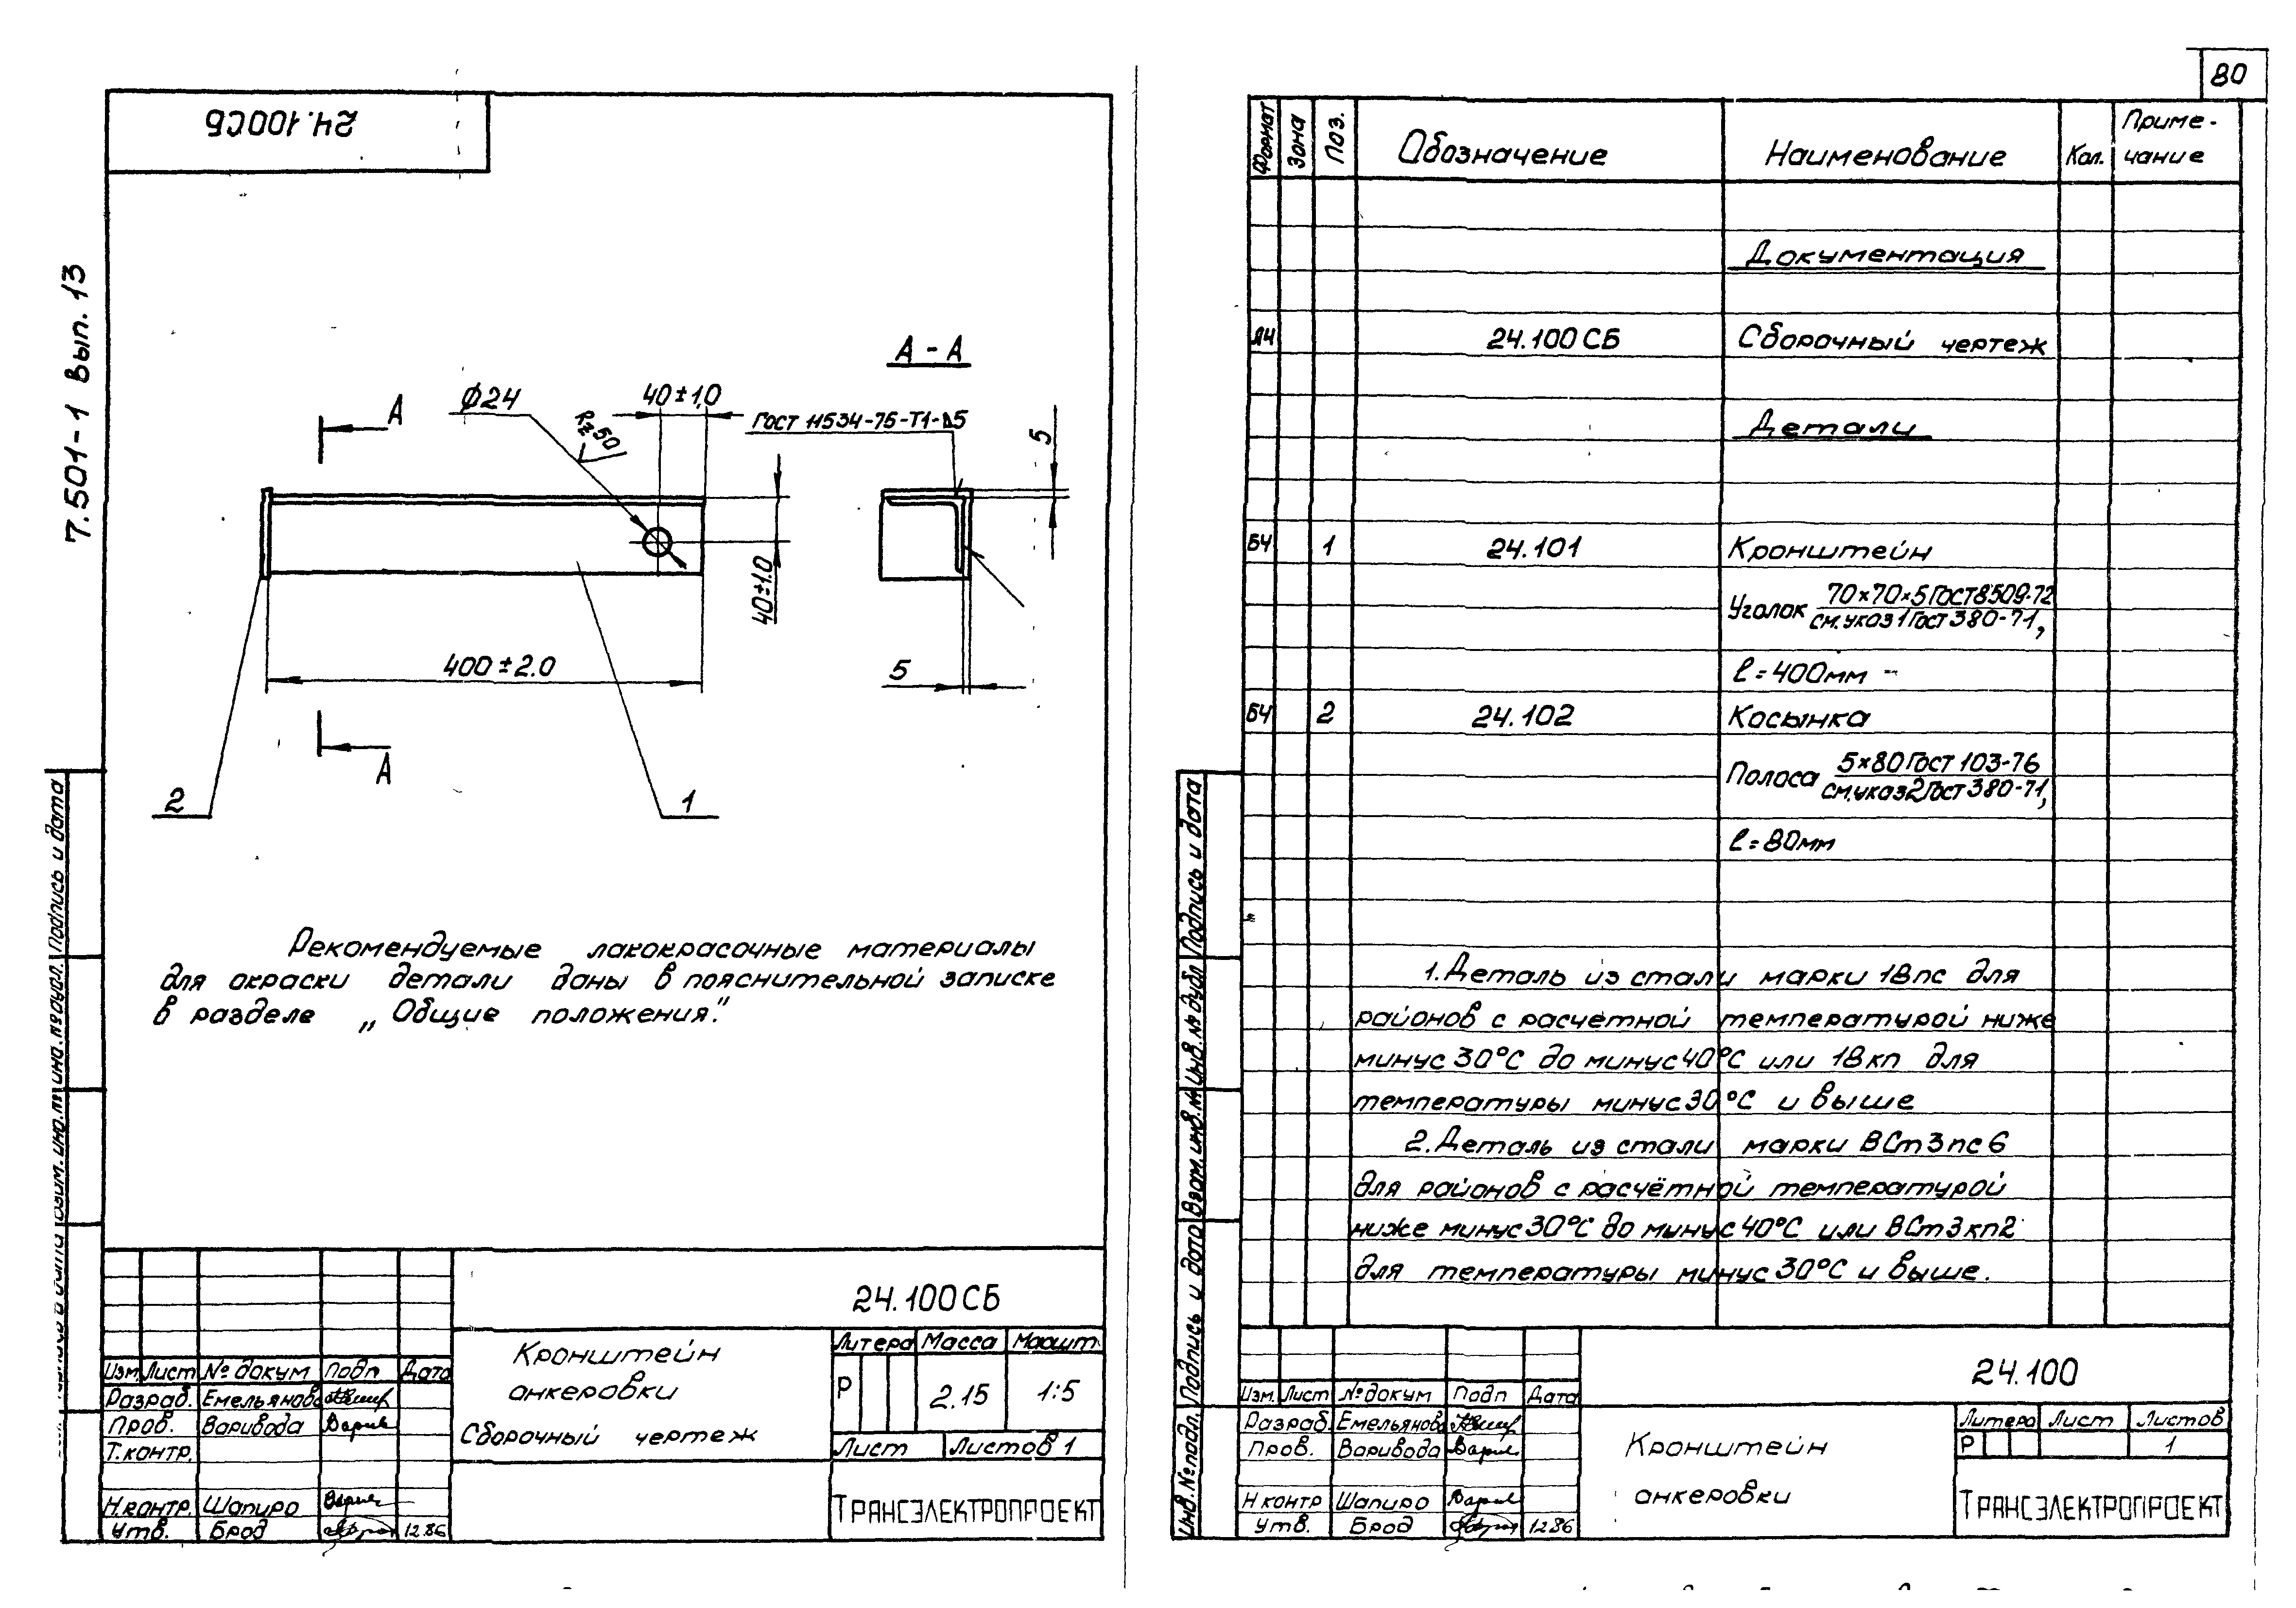 24.100СБ
7.501-1 Вып. 13
А - А
А
Ø24
Rz50
40±1.0
ГОСТ 11534-75-Т1-⊿5
5
40±1.0
400±2.0
5
А
2
1
Рекомендуемые лакокрасочные материалы
для окраски детали даны в пояснительной записке
в разделе „Общие положения."
Подпись и дата
24.100СБ
Кронштейн
анкеровки
Сборочный чертеж
Литера Масса Масшт.
Р 2.15 1:5
Лист Листов 1
ТРАНСЭЛЕКТРОПРОЕКТ
Изм. Лист № докум Подп Дата
Разраб. Емельянова
Пров. Варивода
Т.контр.
Н.контр. Шапиро
Утв. Брод 12.86
80
Формат Зона Поз. Обозначение Наименование Кол. Приме-
чание
Документация
А4 24.100 СБ Сборочный чертеж
Детали
БЧ 1 24.101 Кронштейн
Уголок 70×70×5 ГОСТ 8509-72
см.указ 1 ГОСТ 380-71,
ℓ=400мм
БЧ 2 24.102 Косынка
Полоса 5×80 ГОСТ 103-76
см.указ 2 ГОСТ 380-71,
ℓ=80мм
1. Деталь из стали марки 18пс для
районов с расчётной температурой ниже
минус 30°С до минус 40°С или 18кп для
температуры минус 30°С и выше
2. Деталь из стали марки ВСт3пс6
для районов с расчётной температурой
ниже минус 30°С до минус 40°С или ВСт3кп2
для температуры минус 30°С и выше.
Инв.№подл. Подпись и дата Взам.инв.№ Инв.№дубл Подпись и дата
24.100
Кронштейн
анкеровки
Литера Лист Листов
Р 1
ТРАНСЭЛЕКТРОПРОЕКТ
Изм. Лист № докум Подп Дата
Разраб Емельянова
Пров. Варивода
Н контр Шапиро
Утв. Брод 12.86